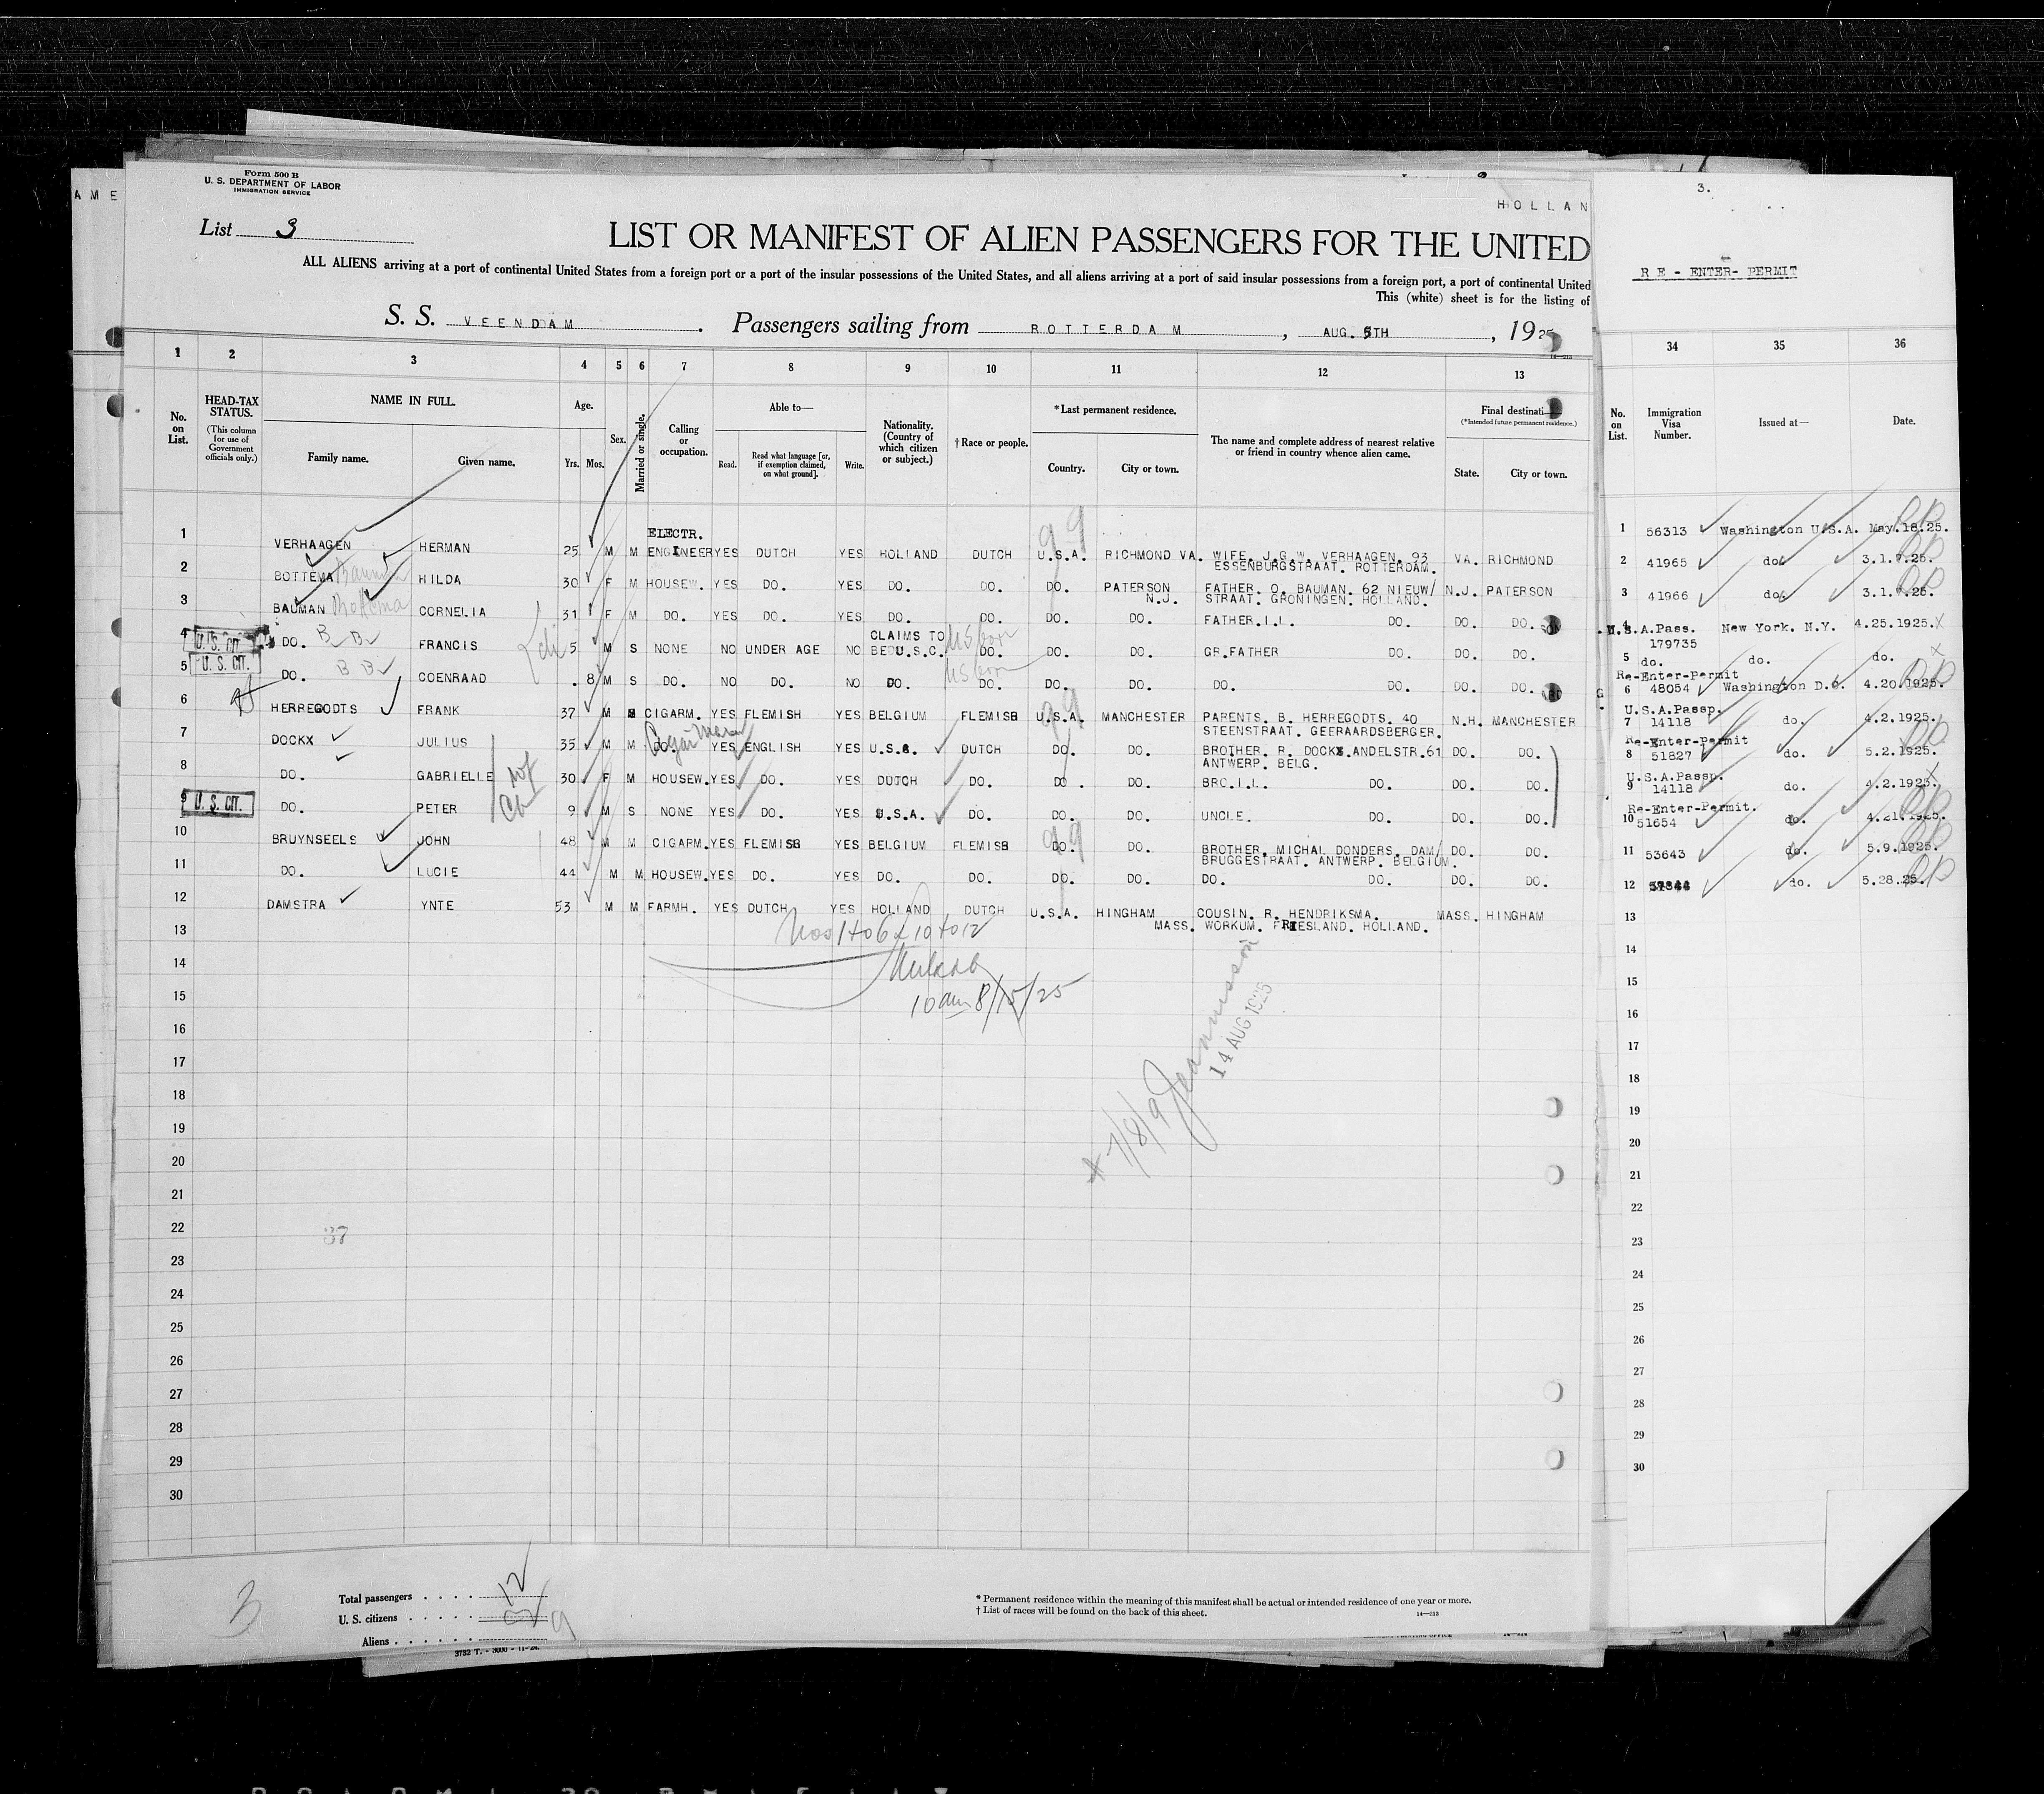 Form 500 B
U. S. DEPARTMENT OF LABOR
IMMIGRATION SERVICE
A M E
HOLLAN
3.
List 3
LIST OR MANIFEST OF ALIEN PASSENGERS FOR THE UNITED
RE-ENTER-PERMIT
ALL ALIENS arriving at a port of continental United States from a foreign port or a port of the insular possessions of the United States, and all aliens arriving at a port of said insular possessions from a foreign port, a port of continental United
This (white) sheet is for the listing of
S. S. VEENDAM. Passengers sailing from ROTTERDAM, AUG. 5TH, 1925
1 2 3 4 5 6 7 8 9 10 11 12 13 34 35 36
No. on List. HEAD-TAX STATUS. (This column for use of Government officials only.) NAME IN FULL. Family name. Given name. Age. Yrs. Mos. Sex. Married or single. Calling or occupation. Able to— Read. Read what language [or, if exemption claimed, on what ground]. Write. Nationality. (Country of which citizen or subject.) † Race or people. * Last permanent residence. Country. City or town. The name and complete address of nearest relative or friend in country whence alien came. Final destinati (* Intended future permanent residence.) State. City or town. No. on List. Immigration Visa Number. Issued at— Date.
1 VERHAAGEN HERMAN 25 M M ELECTR. ENGINEER YES DUTCH YES HOLLAND DUTCH U.S.A. RICHMOND VA. WIFE. J.G.W. VERHAAGEN. 93 ESSENBURGSTRAAT. ROTTERDAM. VA. RICHMOND 1 56313 Washington U.S.A. May.18.25.
2 BOTTEMA Bauman HILDA 30 F M HOUSEW. YES DO. YES DO. DO. DO. PATERSON N.J. FATHER. O. BAUMAN. 62 NIEUW/ STRAAT. GRONINGEN. HOLLAND. N.J. PATERSON 2 41965 do. 3.1.?.25.
3 BAUMAN Bottema CORNELIA 31 F M DO. YES DO. YES DO. DO. DO. DO. FATHER.I.L. DO. DO. DO. 3 41966 do. 3.1.?.25.
4 U. S. CIT. DO. B B FRANCIS 5 M S NONE NO UNDER AGE NO CLAIMS TO BE U.S.C. US born DO. DO. DO. GR.FATHER DO. DO. DO. 4 U.S.A.Pass. 179735 New York. N.Y. 4.25.1925. X
5 U. S. CIT. DO. B B COENRAAD . 8 M S DO. NO DO. NO DO. US born DO. DO. DO. DO. DO. DO. DO. 5 do. do. do. X
6 HERREGODTS FRANK 37 M M CIGARM. YES FLEMISH YES BELGIUM FLEMISH U.S.A. MANCHESTER PARENTS. B. HERREGODTS. 40 STEENSTRAAT. GEERAARDSBERGER. N.H. MANCHESTER 6 Re-Enter-Permit 48054 Washington D.C. 4.20.1925.
7 DOCKX JULIUS 35 M M DO. Cigar Maker YES ENGLISH YES U.S.A. DUTCH DO. DO. BROTHER. R. DOCKX.ANDELSTR.61 ANTWERP. BELG. DO. DO. 7 U.S.A.Passp. 14118 do. 4.2.1925.
8 DO. GABRIELLE wf 30 F M HOUSEW. YES DO. YES DUTCH DO. DO. DO. BRO.I.L. DO. DO. DO. 8 Re-Enter-Permit 51827 do. 5.2.1925.
9 U. S. CIT. DO. PETER Ch 9 M S NONE YES DO. YES U.S.A. DO. DO. DO. UNCLE. DO. DO. DO. 9 U.S.A.Passp. 14118 do. 4.2.1925. X
10 BRUYNSEELS JOHN 48 M M CIGARM. YES FLEMISH YES BELGIUM FLEMISH DO. DO. BROTHER. MICHAL DONDERS. DAM/ BRUGGESTRAAT. ANTWERP. BELGIUM. DO. DO. 10 Re-Enter-Permit. 51654 do. 4.21.1925.
11 DO. LUCIE 44 M M HOUSEW. YES DO. YES DO. DO. DO. DO. DO. DO. DO. DO. 11 53643 do. 5.9.1925.
12 DAMSTRA YNTE 53 M M FARMH. YES DUTCH YES HOLLAND DUTCH U.S.A. HINGHAM MASS. COUSIN. R. HENDRIKSMA. WORKUM. FRIESLAND. HOLLAND. MASS. HINGHAM 12 do. 5.28.25.
13 Nos 1 to 6 & 10 to 12 13
14 14
15 10 am 8/15/25 15
16 16
17 14 AUG 1925 17
18 18
19 * 7/8/9 19
20 20
21 21
22 37 22
23 23
24 24
25 25
26 26
27 27
28 28
29 29
30 30
3
Total passengers 12
U. S. citizens 3
Aliens 9
3732 T. - 3000 - 11-24.
* Permanent residence within the meaning of this manifest shall be actual or intended residence of one year or more.
† List of races will be found on the back of this sheet. 14—213